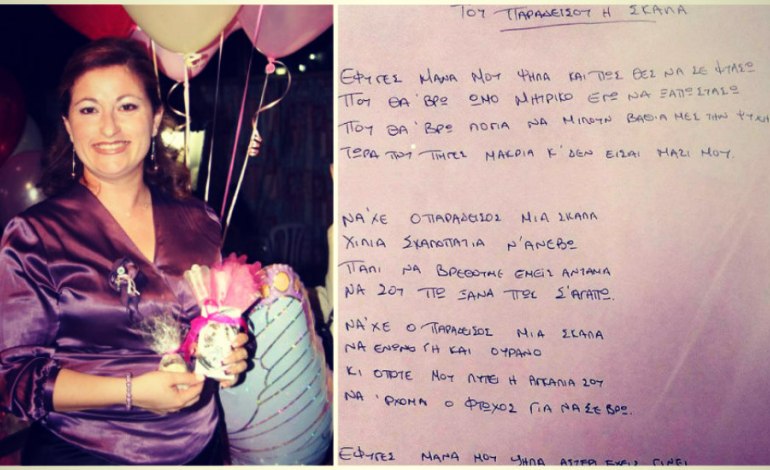 ΤΟΥ ΠΑΡΑΔΕΙΣΟΥ Η ΣΚΑΛΑ
ΕΦΥΓΕΣ ΜΑΝΑ ΜΟΥ ΨΗΛΑ ΚΑΙ ΠΩΣ ΘΕΣ ΝΑ ΣΕ ΦΤΑΣΩ
ΠΟΥ ΘΑ 'ΒΡΩ ΩΜΟ ΜΗΤΡΙΚΟ ΕΓΩ ΝΑ ΞΑΠΟΣΤΑΣΩ
ΠΟΥ ΘΑ 'ΒΡΩ ΛΟΓΙΑ ΝΑ ΜΠΟΥΝ ΒΑΘΙΑ ΜΕΣ ΤΗΝ ΨΥΧΗ
ΤΩΡΑ ΠΟΥ ΠΗΓΕΣ ΜΑΚΡΙΑ Κ' ΔΕΝ ΕΙΣΑΙ ΜΑΖΙ ΜΟΥ.
ΝΑ 'ΧΕ Ο ΠΑΡΑΔΕΙΣΟΣ ΜΙΑ ΣΚΑΛΑ
ΧΙΛΙΑ ΣΚΑΛΟΠΑΤΙΑ Ν' ΑΝΕΒΩ
ΠΑΛΙ ΝΑ ΒΡΕΘΟΥΜΕ ΕΜΕΙΣ ΑΝΤΑΜΑ
ΝΑ ΣΟΥ ΠΩ ΞΑΝΑ ΠΩΣ Σ' ΑΓΑΠΩ.
ΝΑ 'ΧΕ Ο ΠΑΡΑΔΕΙΣΟΣ ΜΙΑ ΣΚΑΛΑ
ΝΑ ΕΝΩΝΩ ΓΗ ΚΑΙ ΟΥΡΑΝΟ
ΚΙ ΟΠΟΤΕ ΜΟΥ ΛΥΠΕΙ Η ΑΓΚΑΛΙΑ ΣΟΥ
ΝΑ 'ΡΧΟΜΑ Ο ΦΤΩΧΟΣ ΓΙΑ ΝΑ ΣΕ ΒΡΩ.
ΕΦΥΓΕΣ ΜΑΝΑ ΜΟΥ ΨΗΛΑ ΑΣΤΕΡΙ ΕΧΕΙΣ ΓΙΝΕΙ